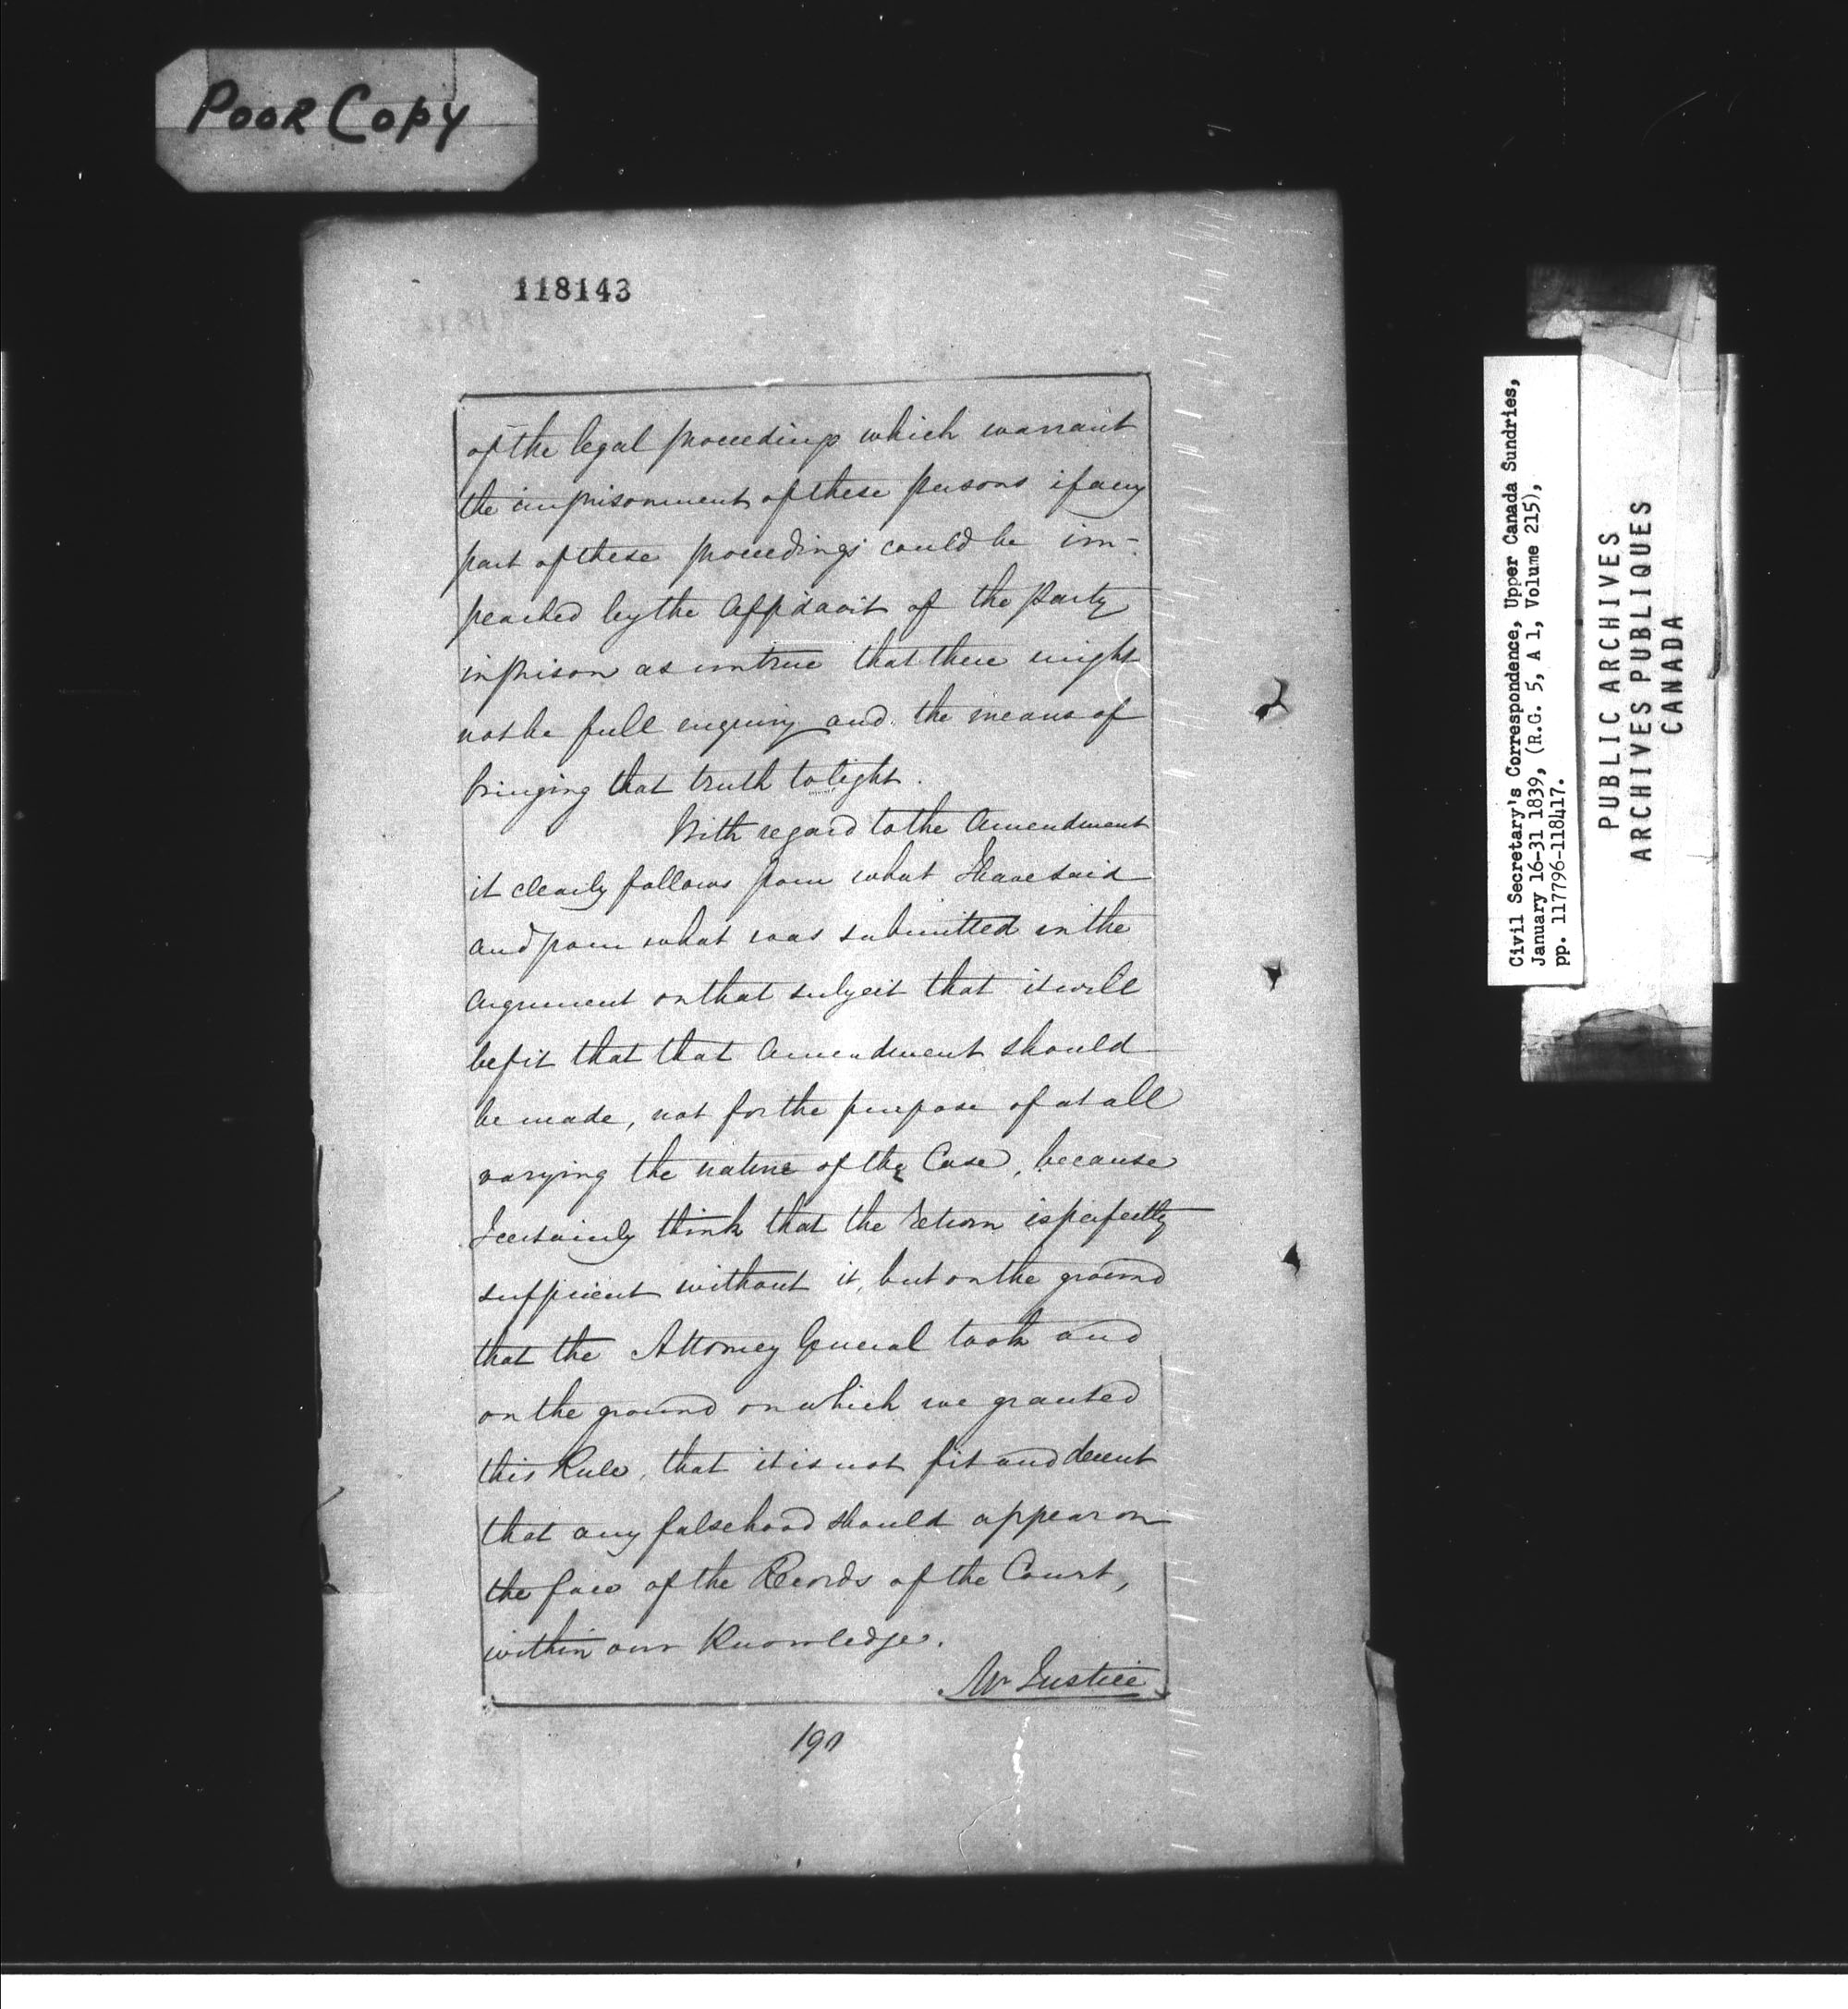 POOR COPY
118143
of the legal proceedings which warrant
the imprisonment of these persons if any
part of these proceedings could be im-
peached by the Affidavit of the Party
in prison as untrue that there might
not be full enquiry and the means of
bringing that truth to light.
With regard to the Amendment
it clearly follows from what I have said
and from what was submitted in the
argument on that subject that it will
be fit that that Amendment should
be made, not for the purpose of at all
varying the nature of the Case, because
I certainly think that the return is perfectly
sufficient without it, but on the ground
that the Attorney General took and
on the ground on which we granted
this Rule, that it is not fit and decent
that any falsehood should appear on
the face of the Records of the Court,
within our Knowledge.
Mr Justice
190
Civil Secretary's Correspondence, Upper Canada Sundries,
January 16-31 1839, (R.G. 5, A 1, Volume 215),
pp. 117796-118417.
PUBLIC ARCHIVES
ARCHIVES PUBLIQUES
CANADA